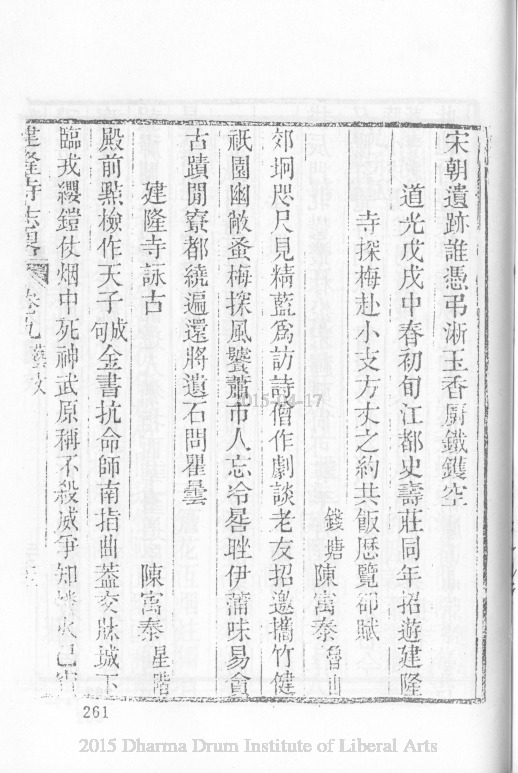 宋朝遺跡誰憑弔淅玉香厨鐵鑊空
道光戊戌中春初旬江都史壽莊同年招遊建隆
寺探梅赴小支方丈之約共飯歷覽卻賦
錢塘陳寓泰
郊坰咫尺見精藍爲訪詩僧作劇談老友招邀攜竹健
祇園幽敞蚤梅探風饕蕭市人忘冷晷䠂伊蒲味易貪
古蹟閒尞都繞遍還將遺石問瞿曇
建隆寺詠古 陳寓泰星階
殿前㸃檢作天子成句金書抗命師南指曲蓋交牀城下
臨戎纓鎧仗烟中死神武原稱不殺威爭知
建隆寺志畧 卷九藝文
261
2015-04-17
2015 Dharma Drum Institute of Liberal Arts